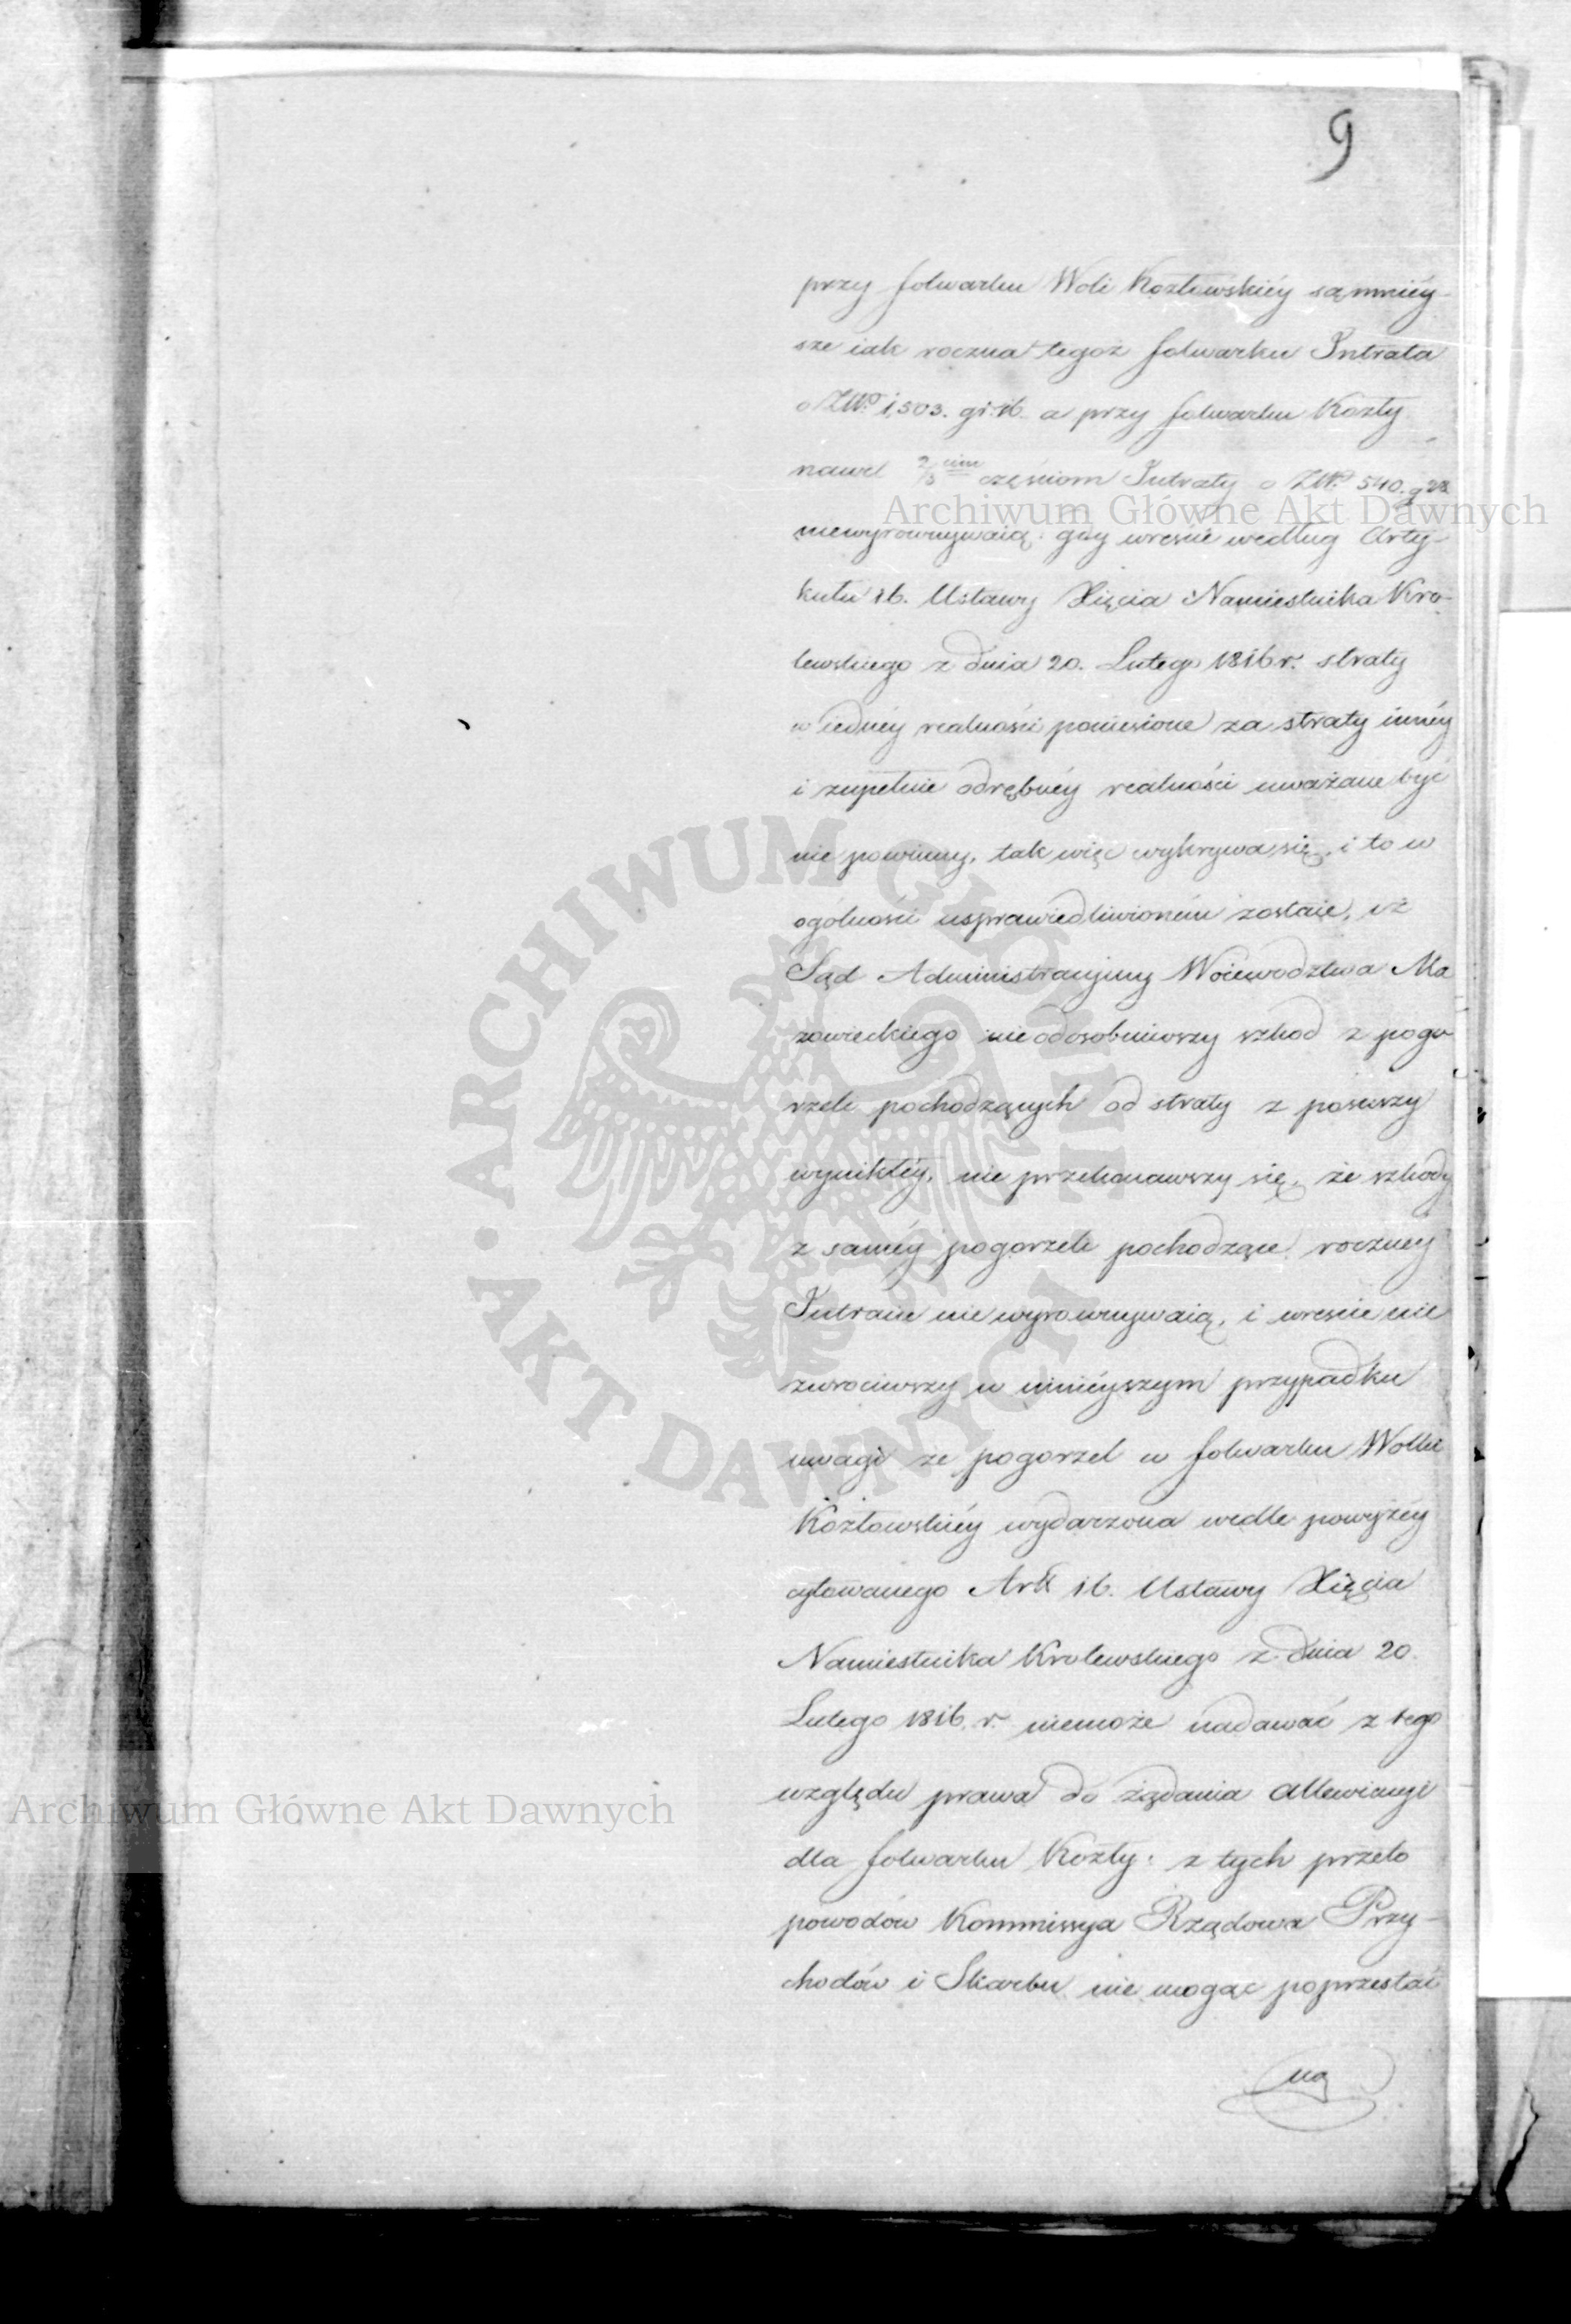 9
przy folwarku Woli Kozłowskiéy są mniéy-
sze iak roczna tegoż folwarku Intrata
o ZłłP. 1,503. gr. 16. a przy folwarku Kozły
nawet 2/3 cim częściom Intraty o ZłP. 540. g 28
niewyrownywaią: gdy wreście według Arty-
kułu 16. Ustawy Xięcia Namiestnika Kro-
lewskiego z dnia 20. Lutego 1816 r. straty
w iednéy realności poniesione za straty innéy
i zupełnie odrębnéy realności uważane być
nie powinny, tak więc wykrywa się, i to w
ogólności usprawiedliwioném zostaie, iż
Sąd Administracyiny Woiewodztwa Ma
zowieckiego nieodosobniwszy szkod z pogo
rzeli pochodzących od straty z posuszy
wynikłéy, nie przekonawszy się, że szkody
z saméy pogorzeli pochodzące roczney
Intracie nie wyrownywaią, i wreście nie
zwrociwszy w ninieyszym przypadku
uwagi że pogorzel w folwarku Wolki
Kozłowskiéy wydarzona wedle powyżéy
cytowanego Artt 16. Ustawy Xięcia
Namiestnika Krolewskiego z dnia 20.
Lutego 1816. r. niemoże nadawać z tego
względu prawa do żądania allewiacyi
dla folwarku Kozły: z tych przeto
powodów Kommissya Rządowa Przy-
chodów i Skarbu nie mogąc poprzestać
na
Archiwum Główne Akt Dawnych
Archiwum Główne Akt Dawnych
ARCHIWUM GŁÓWNE AKT DAWNYCH